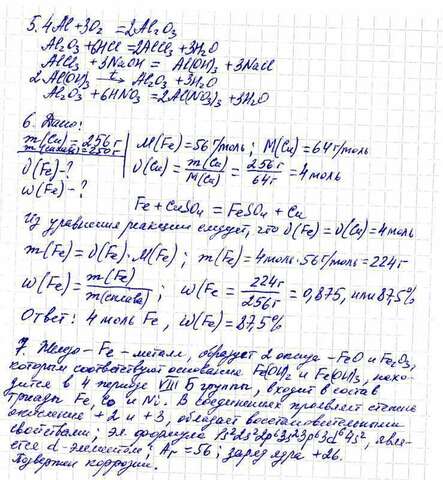 5. 4Al + 3O₂ = 2Al₂O₃
Al₂O₃ + 6HCl = 2AlCl₃ + 3H₂O
AlCl₃ + 3NaOH = Al(OH)₃ + 3NaCl
2Al(OH)₃ t→ Al₂O₃ + 3H₂O
Al₂O₃ + 6HNO₃ = 2Al(NO₃)₃ + 3H₂O
6. Дано:
m(Cu) = 256г
m(сплава) = 256г
ν(Fe) - ?
ω(Fe) - ?
M(Fe) = 56 г/моль; M(Cu) = 64 г/моль
ν(Cu) = m(Cu)/M(Cu) = 256г/64г = 4 моль
Fe + CuSO₄ = FeSO₄ + Cu
Из уравнения реакции следует, что ν(Fe) = ν(Cu) = 4 моль
m(Fe) = ν(Fe) · M(Fe); m(Fe) = 4 моль · 56 г/моль = 224г
ω(Fe) = m(Fe)/m(сплава); ω(Fe = 224г/256г = 0,875, или 87,5%
Ответ: 4 моль Fe, ω(Fe) = 87,5%
7. Железо - Fe - металл, образует 2 оксида - FeO и Fe₂O₃,
которым соответствуют основания Fe(OH)₂ и Fe(OH)₃, нахо-
дится в 4 периоде VIII Б группы, входит в состав
триады Fe, Co и Ni. В соединениях проявляет степени
окисления +2 и +3, обладает восстановительными
свойствами; эл. формула 1s²2s²2p⁶3s²3p⁶3d⁶4s², явля-
ется d-элементом; Ar = 56; заряд ядра +26.
Подвержен коррозии.